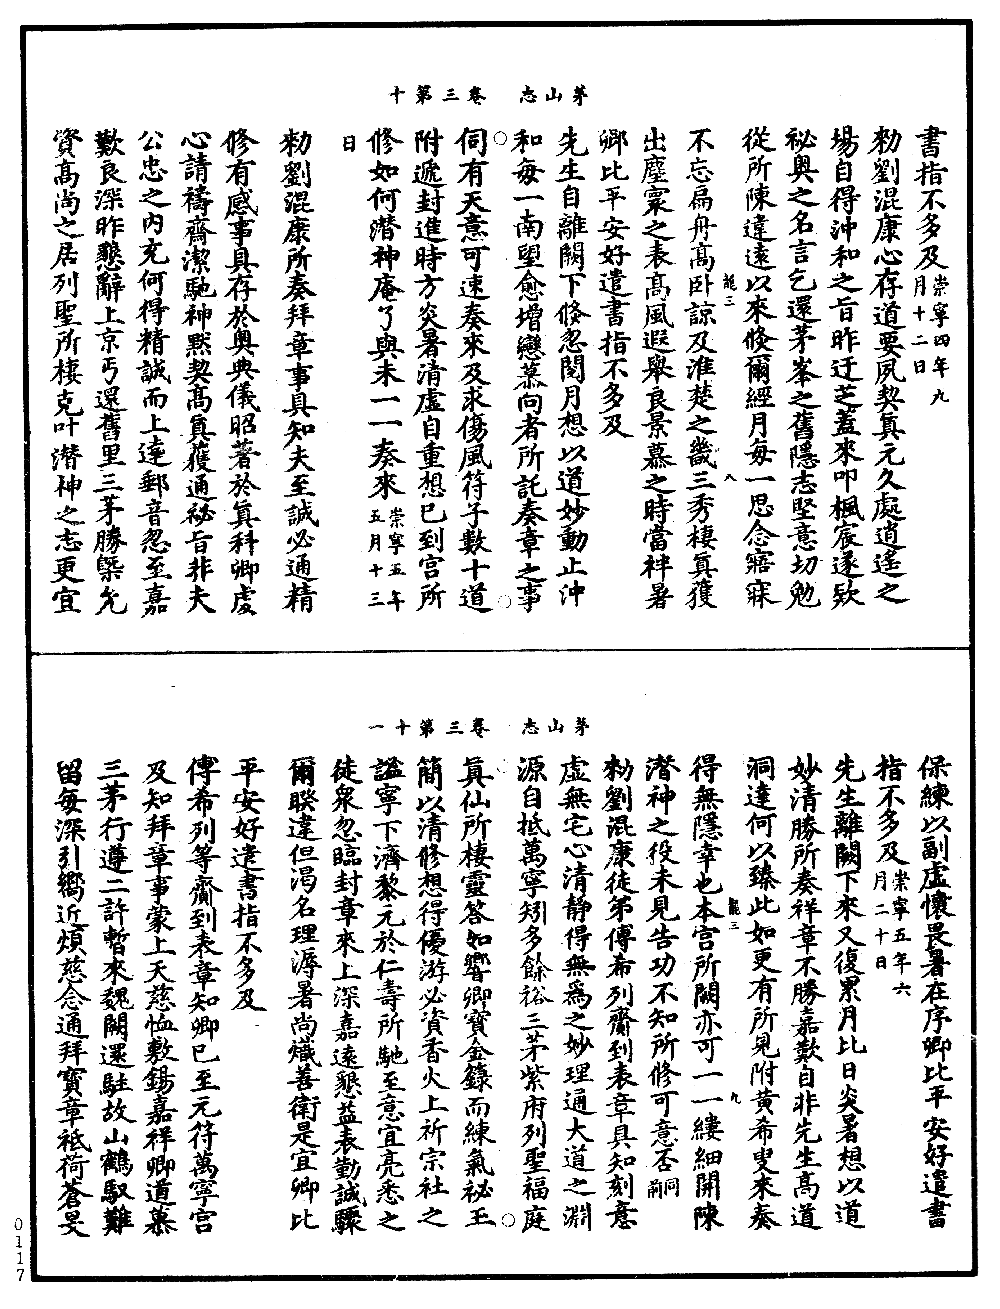 茅山志　卷三第十
書指不多及崇寧四年九
月十二日
勑劉混康心存道要夙契真元久處逍遙之
場自得沖和之旨昨迂芝蓋來叩楓宸遂欵
祕奧之名言乞還茅峯之舊隱志堅意切勉
從所陳違遠以來倐爾經月每一思念寤寐
龍三　八
不忘扁舟高卧諒及淮楚之畿三秀棲真獲
出塵寰之表高風遐舉良景慕之時當袢暑
卿比平安好遣書指不多及
先生自離闕下倐忽閱月想以道妙動止沖
和每一南望愈增戀慕向者所託奏章之事
伺有天意可速奏來及求傷風符子數十道
附遞封進時方炎暑清虛自重想已到宮所
修如何潛神庵了與未一一奏來崇寧五年
五月十三
日
勑劉混康所奏拜章事具知夫至誠必通精
修有感事具存於奧典儀昭著於真科卿虔
心請禱齋潔馳神黙契高真獲通祕旨非夫
公忠之內充何得精誠而上達郵音忽至嘉
歎良深昨懇辭上京丐還舊里三茅勝槩允
資高尚之居列聖所棲克叶潛神之志更宜
茅山志　卷三第十一
保練以副虛懷畏暑在序卿比平安好遣書
指不多及崇寧五年六
月二十日
先生離闕下來又復累月比日炎暑想以道
妙清勝所奏祥章不勝嘉歎自非先生高道
洞達何以臻此如更有所見附黃希叟來奏
龍三　九
得無隱幸也本宮所闕亦可一一縷細開陳
潛神之役未見告功不知所修可意否同前
勑劉混康徒弟傅希列齎到表章具知刻意
虛無宅心清靜得無為之妙理通大道之淵
源自抵萬寧矧多餘裕三茅紫府列聖福庭
真仙所棲靈答如響卿寶金籙而練氣祕玉
簡以清修想得優游必資香火上祈宗社之
謐寧下濟黎元於仁壽所馳至意宜亮悉之
徒眾忽臨封章來上深嘉遠懇益表勤誠驟
爾睽違但渴名理溽暑尚熾善衛是宜卿比
平安好遣書指不多及
傅希列等齎到表章知卿已至元符萬寧宮
及知拜章事蒙上天慈恤敷錫嘉祥卿道慕
三茅行遵二許暫來魏闕還駐故山鶴馭難
留每深引嚮近煩慈念通拜寶章祗荷蒼旻
0117